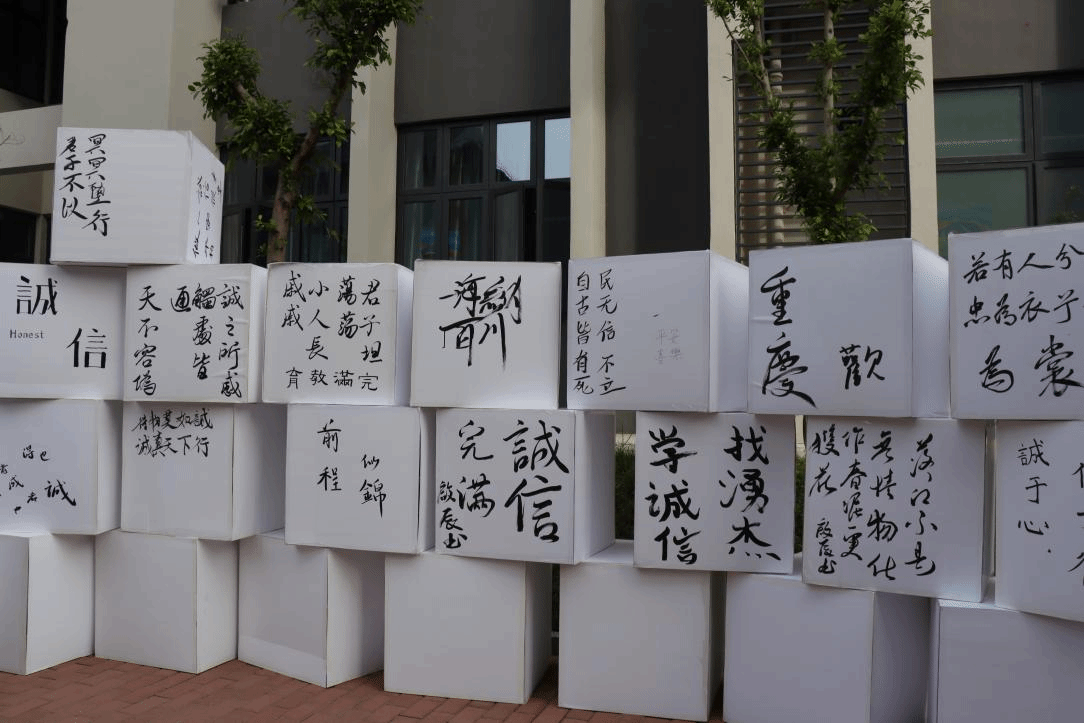 冥冥墮行
君子不以
誠
信
Honest
誠之所感
觸處皆
通
天不容偽
君子坦
蕩蕩
小人長
戚戚
完
滿
教
育
海納
百川
民无信不立
自古皆有死
平安
喜樂
重慶
歡
若有人兮
衣
為
裳
誠
誠真天下行
前程
仙錦
誠信
完满
啟辰书
找湧杰
学誠信
落红不是
无情物化
作春泥更
護花
啟辰书
誠于心